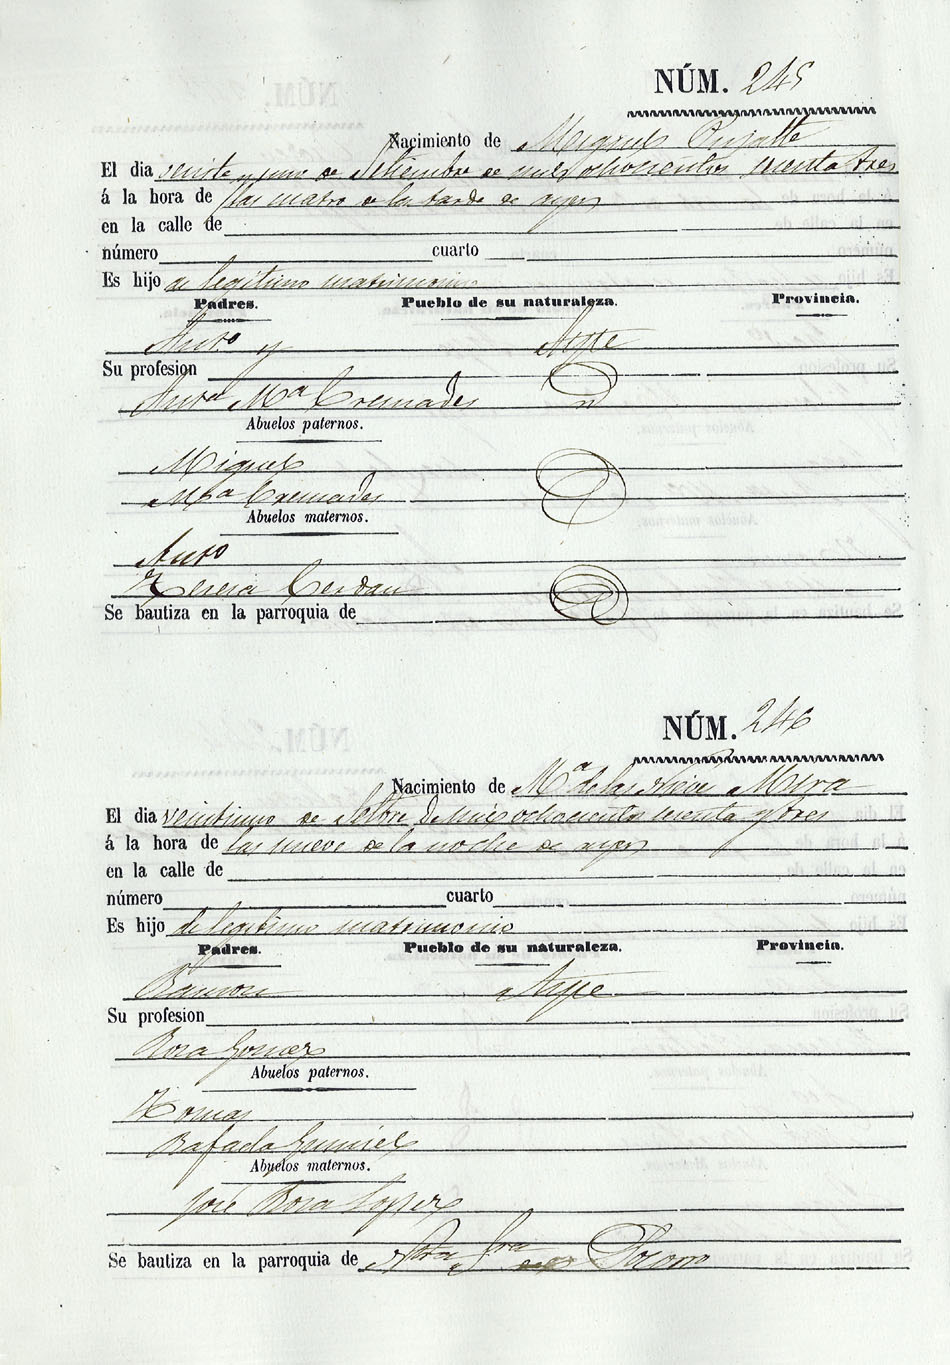 NÚM. 245
Nacimiento de Miguel
El dia veinte y uno de Setiembre de mil ochocientos sesenta tres
á la hora de las cuatro de la tarde de ayer
en la calle de
número cuarto
Es hijo de legítimo matrimonio
Padres. Pueblo de su naturaleza. Provincia.
Anto y Aspe
Su profesion
Anta Ma Cremades
Abuelos paternos.
Miguel
Ma Cremades
Abuelos maternos.
Anto
Teresa Cerdan
Se bautiza en la parroquia de
NÚM. 246
Nacimiento de Ma de las Nieves Mira
El dia veintiuno de Setbre de mil ochocientos sesenta y tres
á la hora de las nueve de la noche de ayer
en la calle de
número cuarto
Es hijo de legítimo matrimonio
Padres. Pueblo de su naturaleza. Provincia.
Ramon Aspe
Su profesion
Rosa Gomez
Abuelos paternos.
Tomas
Rafaela
Abuelos maternos.
José Rosa Lopez
Se bautiza en la parroquia de Ntra Sra del Socorro